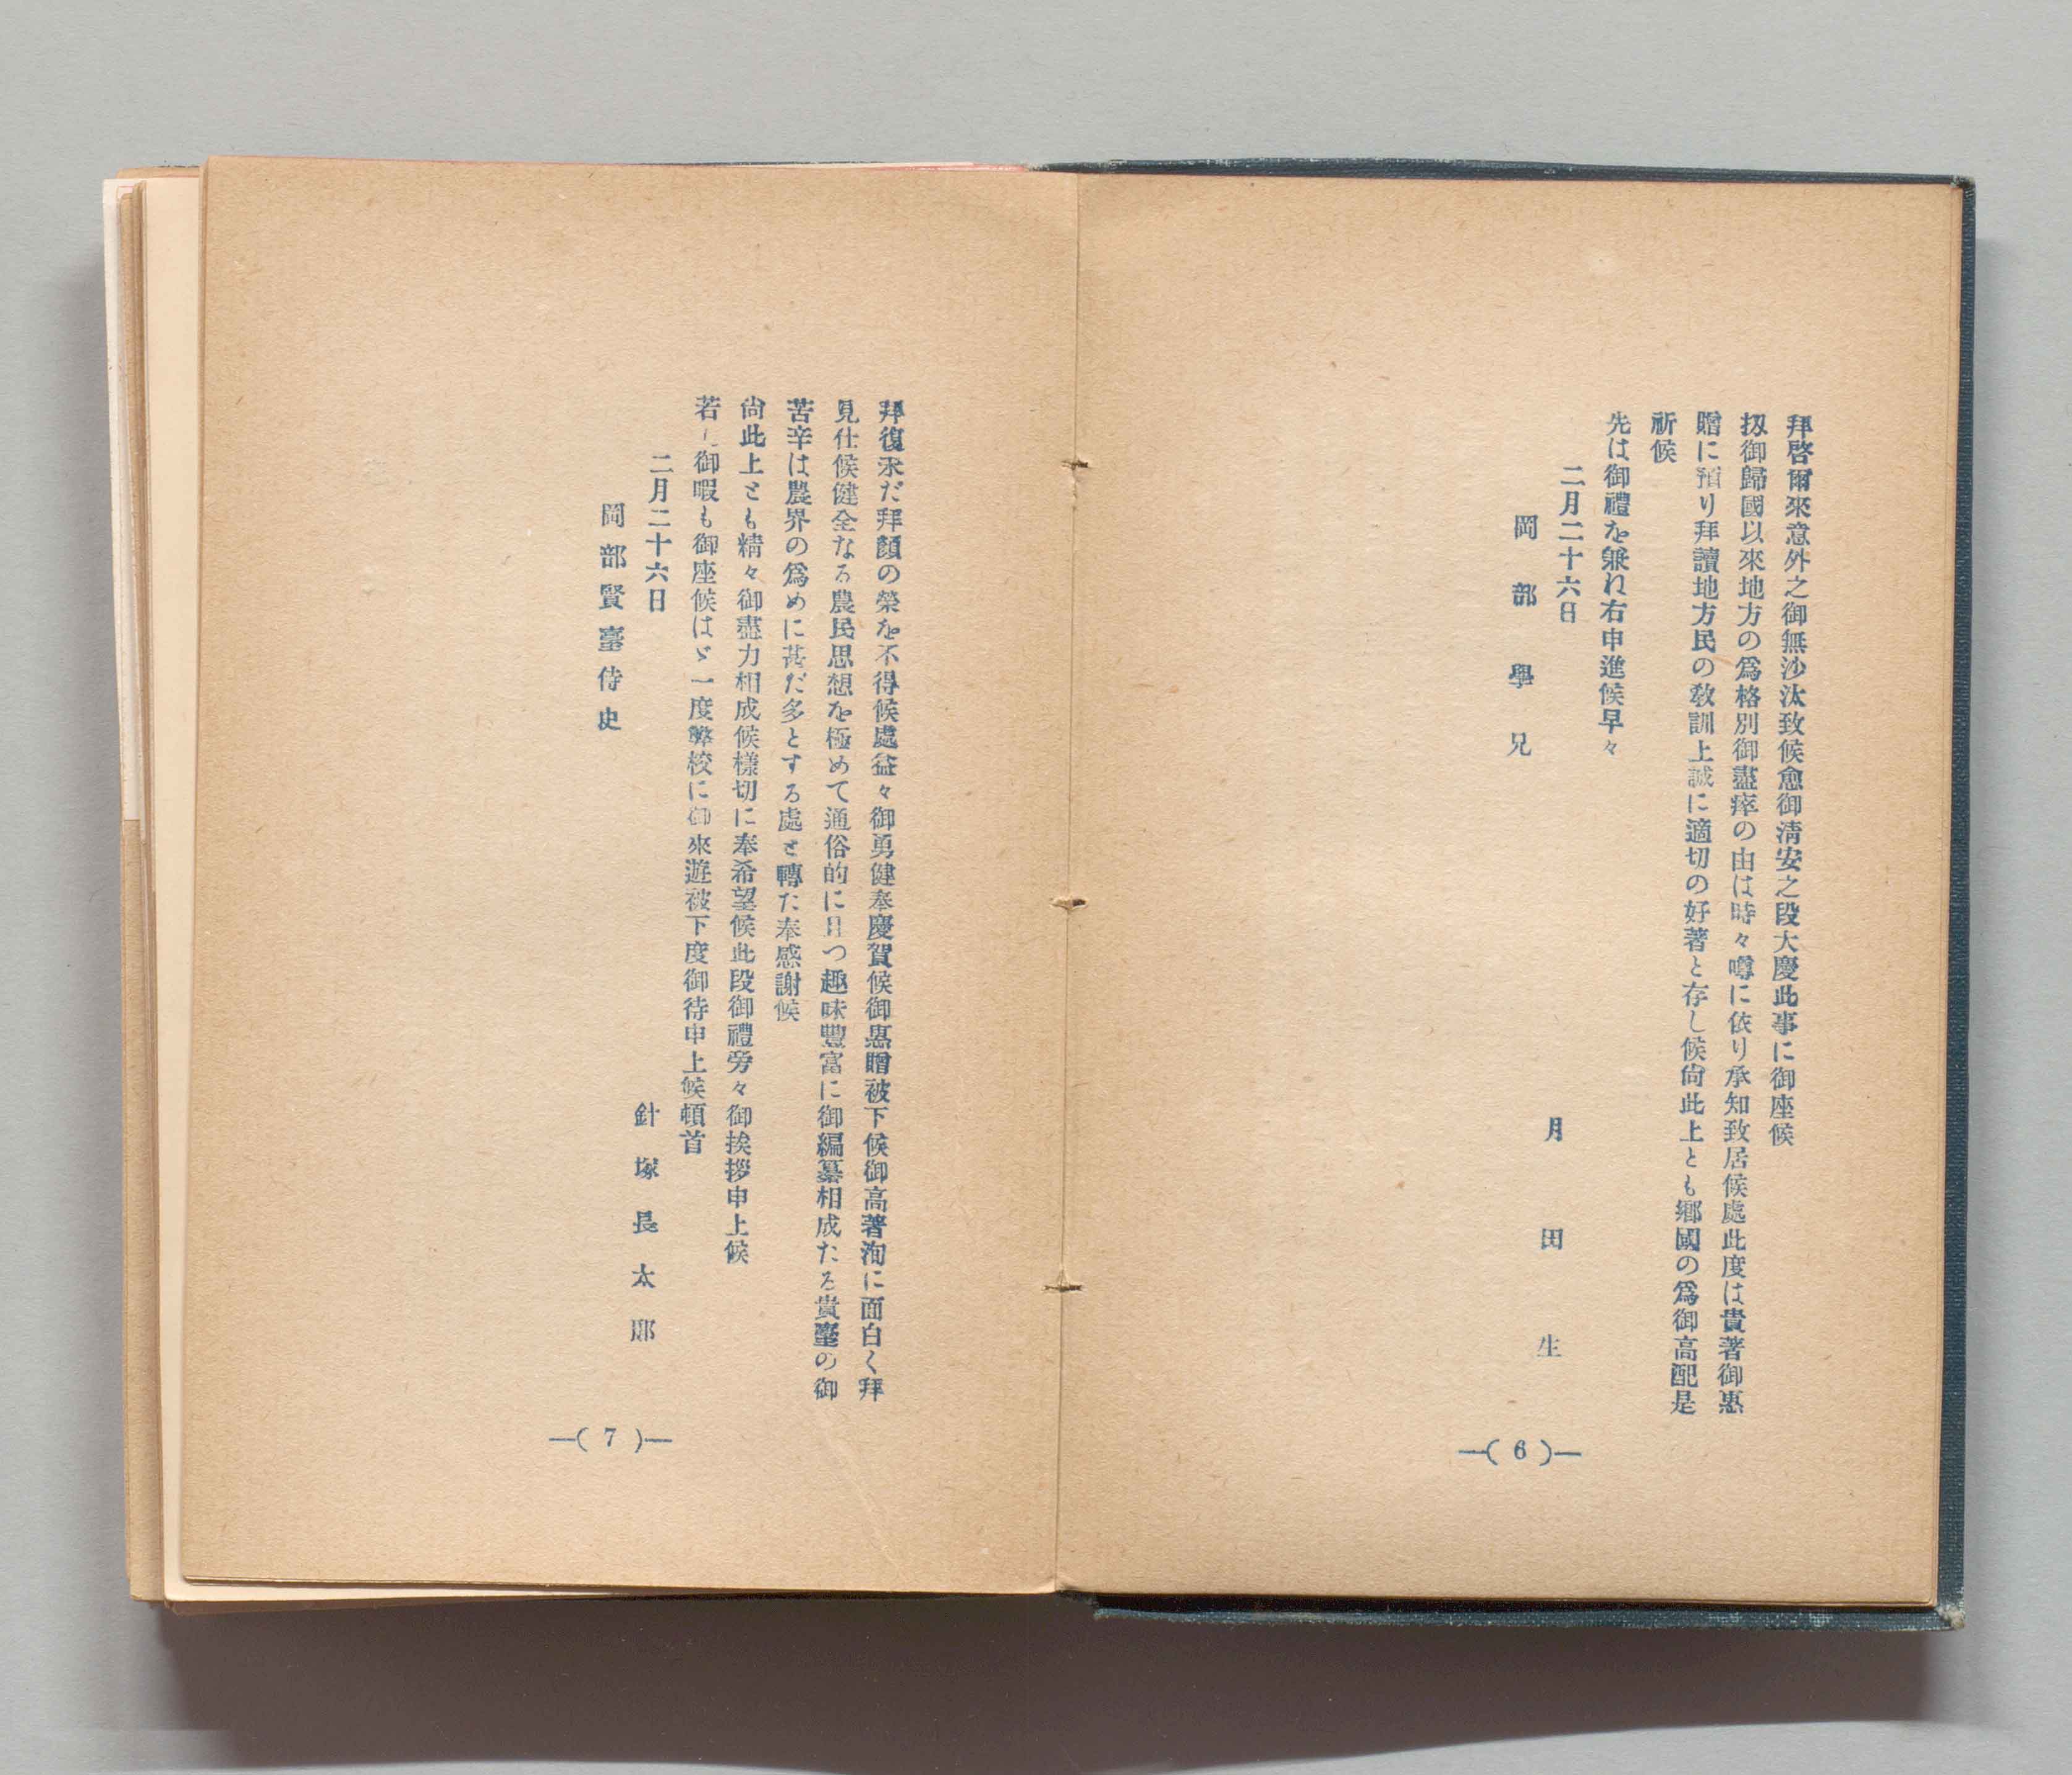 拜啓爾來意外之御無沙汰致候愈御淸安之段大慶此事に御座候
扨御歸國以來地方の爲格別御盡瘁の由は時々噂に依り承知致居候處此度は貴著御惠
贈に預り拜讀地方民の敎訓上誠に適切の好著と存し候尙此上とも鄕國の爲御高配是
祈候
先は御禮を兼ね右申進候早々
二月二十六日
月田生
岡部學兄
—( 6 )—
拜復未だ拜顔の榮を不得候處益々御勇健奉慶賀候御惠贈被下候御高著洵に面白く拜
見仕候健全なる農民思想を極めて通俗的に且つ趣味豐富に御編纂相成たる貴臺の御
苦辛は農界の爲めに甚だ多とする處と轉た奉感謝候
尙此上とも精々御盡力相成候樣切に奉希望候此段御禮旁々御挨拶申上候
若し御暇も御座候はゞ一度弊校に御來遊被下度御待申上候頓首
二月二十六日
針塚長太郎
岡部賢臺侍史
—( 7 )—